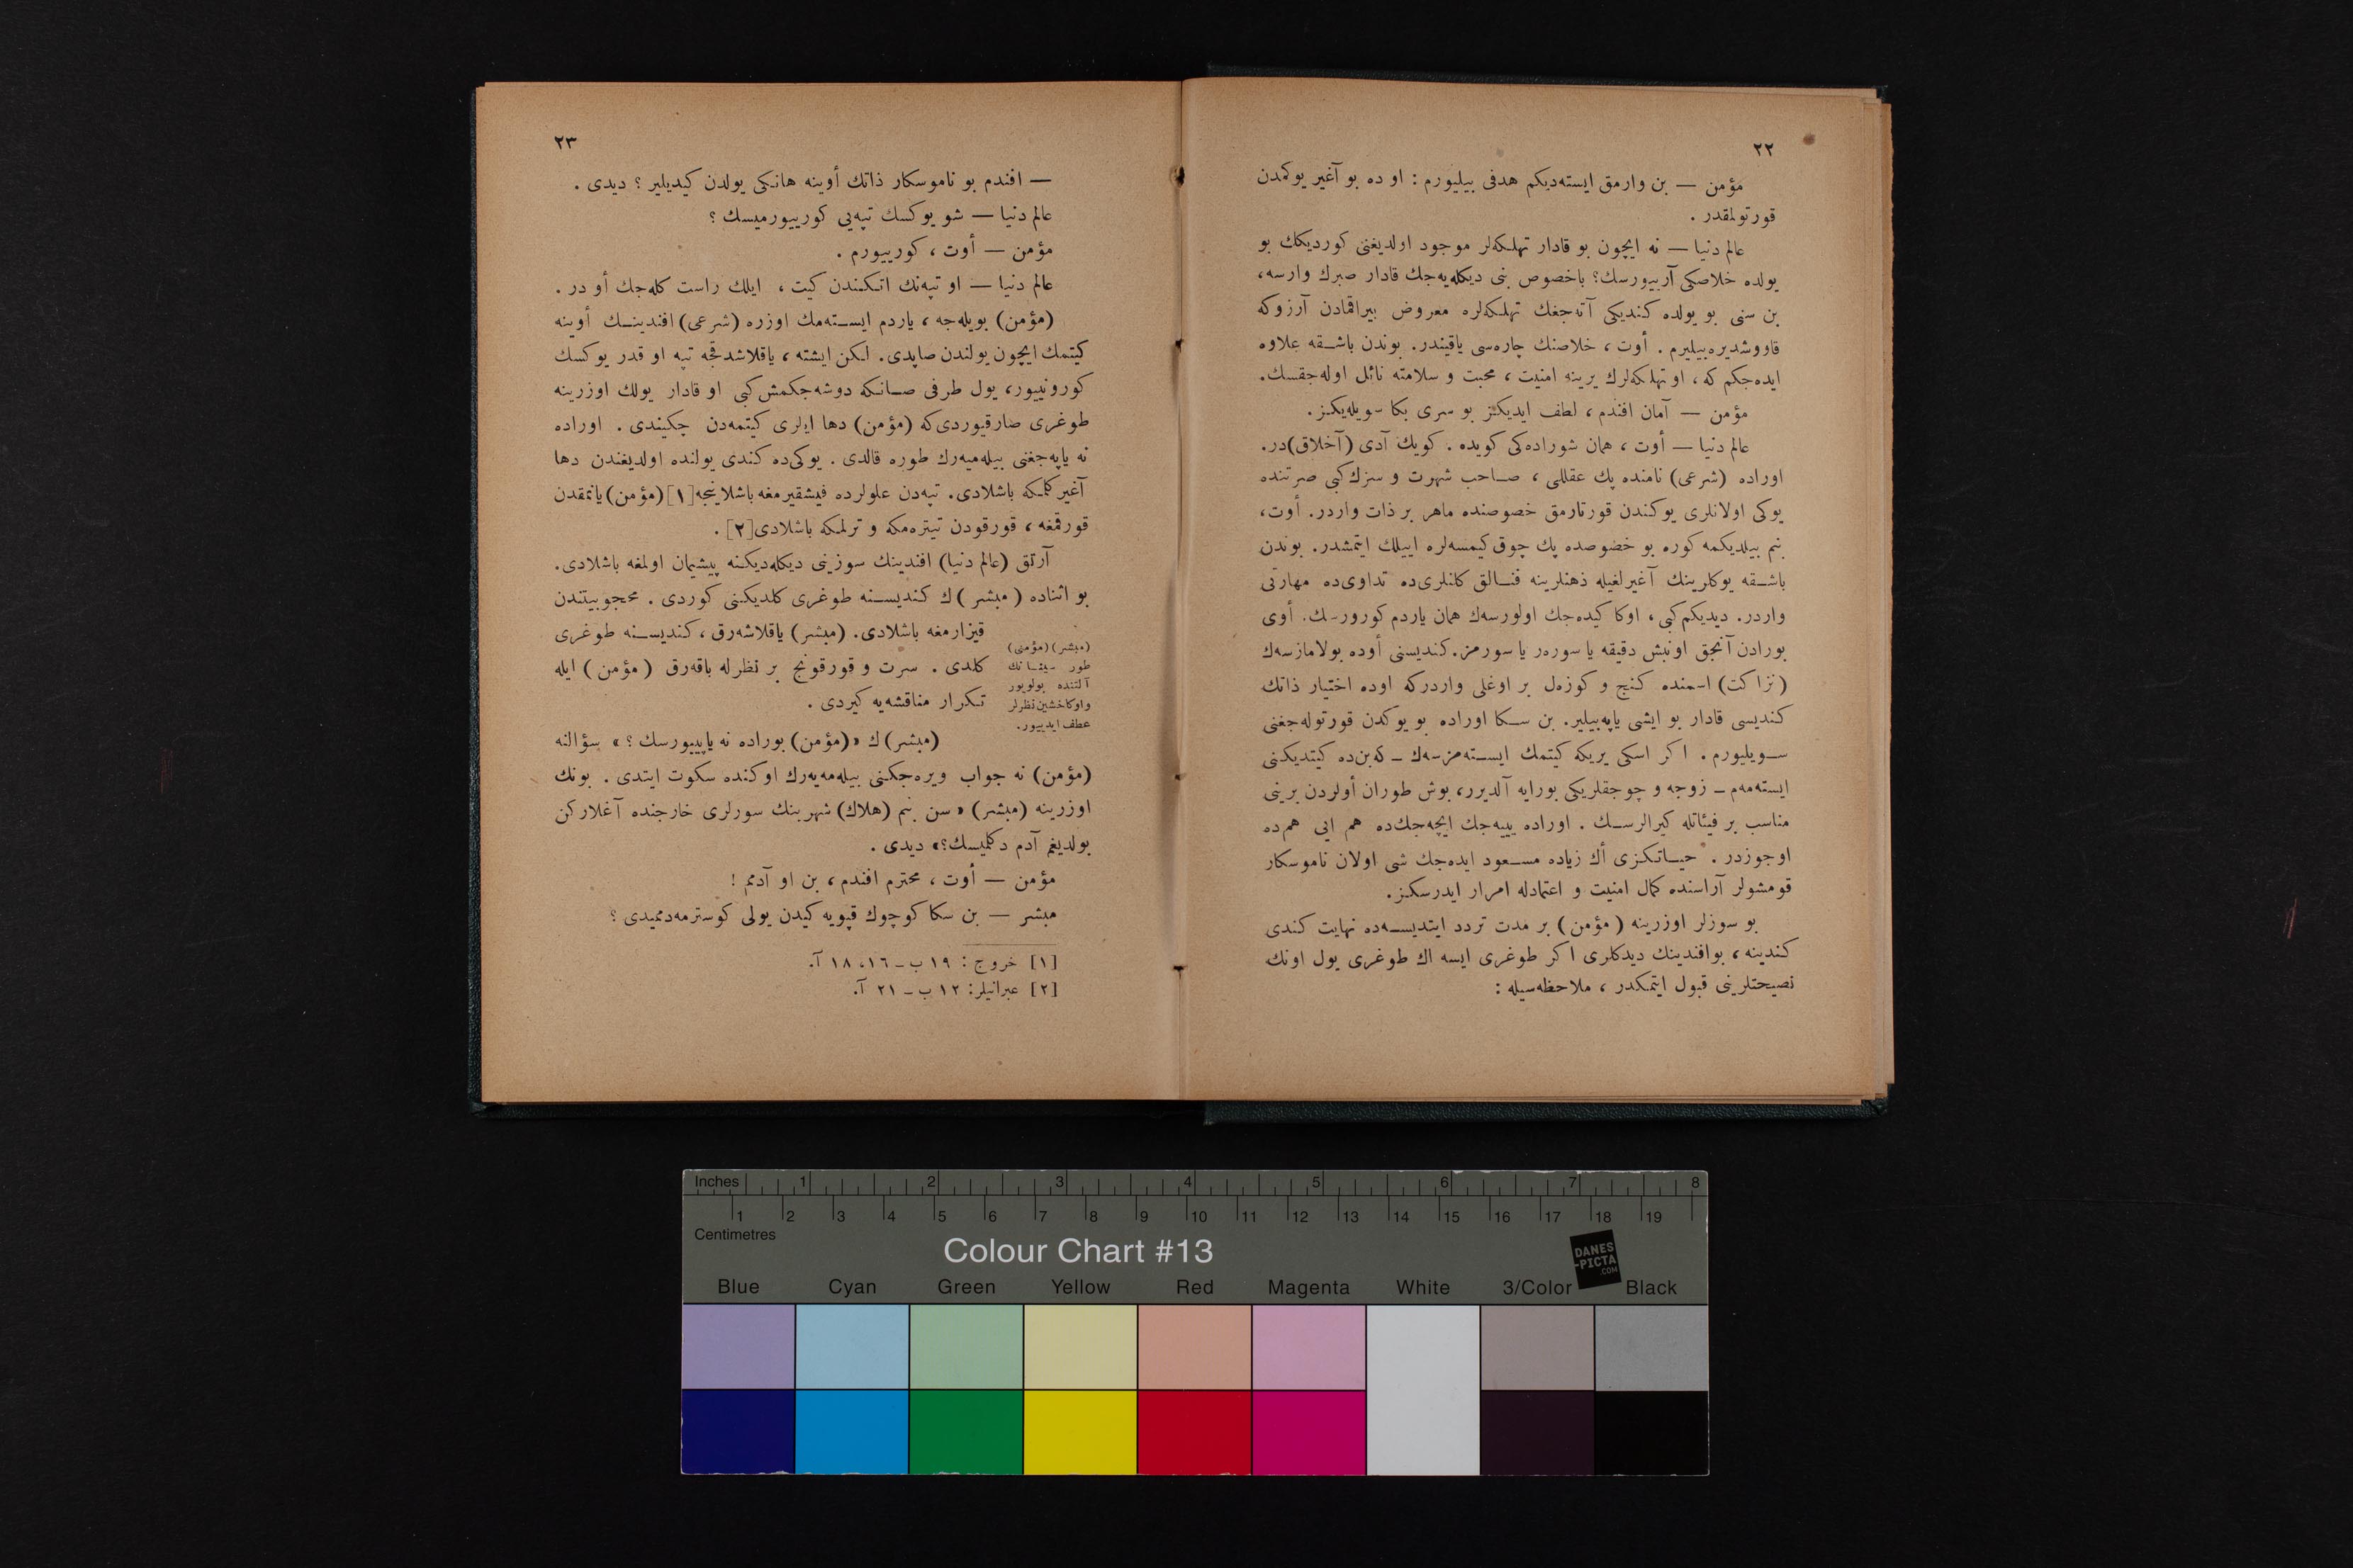 ٢٢
مؤمن — بن وارمق ایسته‌دیكم هدفی بیلیورم : او ده بو آغیر یوكمدن
قورتولمقدر .
عالم دنیا — نه ایچون بو قادار تهلكه‌لر موجود اولدیغنی كوردیكك بو
یولده خلاصكی آرییورسك؟ باخصوص بنی دیكله‌یه‌جك قادار صبرك وارسه،
بن سنی بو یولده كندیكی آته‌جغك تهلكه‌لره معروض بیراقمادن آرزوكه
قاووشدیره‌بیلیرم . أوت ، خلاصنك چاره‌سی یاقیندر. بوندن باشقه علاوه
ایده‌جكم كه ، او تهلكه‌لرك یرینه امنیت ، محبت و سلامته نائل اوله‌جقسك.
مؤمن — آمان افندم ، لطف ایدیكز بو سری بكا سویله‌یكز .
عالم دنیا — أوت ، همان شوراده‌كی كویده . كویك آدی (آخلاق)در.
اوراده (شرعی) نامنده پك عقللی ، صاحب شهرت و سزك كبی صرتنده
یوكی اولانلری یوكندن قورتارمق خصوصنده ماهر بر ذات واردر. أوت،
بنم بیلدیكمه كوره بو خصوصده پك چوق كیمسه‌لره اییلك ایتمشدر. بوندن
باشقه یوكلرینك آغیرلغیله ذهنلرینه فنالق كلنلری‌ده تداوی‌ده مهارتی
واردر. دیدیكم كبی ، اوكا كیده‌جك اولورسه‌ك همان یاردم كورورسك. أوی
بورادن آنجق اونبش دقیقه یا سورەر یا سورمز. كندیسنی أوده بولامازسه‌ك
(نزاكت) اسمنده كنج و كوزه‌ل بر اوغلی واردركه اوده اختیار ذاتك
كندیسی قادار بو ایشی یاپه‌بیلیر. بن سكا اوراده بو یوكدن قورتوله‌جغنی
سویلیورم . اكر اسكی یریكه كیتمك ایسته‌مزسه‌ك ـ كه بن‌ده كیتدیكنی
ایسته‌مه‌م ـ زوجه و چوجقلریكی بورایه آلدیرر، بوش طوران أولردن برینی
مناسب بر فیئاتله كیرالرسك . اوراده یییه‌جك ایچه‌جك‌ده هم ایی هم‌ده
اوجوزدر . حیاتكزی أك زیاده مسعود ایده‌جك شی اولان ناموسكار
قومشولر آراسنده كمال امنیت و اعتمادله امرار ایدرسكز.
بو سوزلر اوزرینه (مؤمن) بر مدت تردد ایتدیسه‌ده نهایت كندی
كندینه ، بوافندینك دیدكلری اكر طوغری ایسه اك طوغری یول اونك
نصیحتلرینی قبول ایتمكدر ، ملاحظه‌سیله :
٢٣
— افندم بو ناموسكار ذاتك أوینه هانكی یولدن كیدیلیر ؟ دیدی .
عالم دنیا — شو یوكسك تپه‌یی كورییورمیسك ؟
مؤمن — أوت ، كورییورم .
عالم دنیا — او تپه‌نك اتكندن كیت ، ایلك راست كله‌جك أو در .
(مؤمن) بویله‌جه ، یاردم ایسته‌مك اوزره (شرعی) افندینك أوینه
كیتمك ایچون یولندن صاپدی. لكن ایشته ، یاقلاشدقجه تپه او قدر یوكسك
كورونییور، یول طرفی صانكه دوشه‌جكمش كبی او قادار یولك اوزرینه
طوغری صارقیوردی‌كه (مؤمن) دها ایلری كیتمه‌دن چكیندی . اوراده
نه یاپه‌جغنی بیله‌میه‌رك طوره قالدی . یوكی‌ده كندی یولنده اولدیغندن دها
آغیر كلمكه باشلادی. تپه‌دن علولرده فیشقیرمغه باشلاینجه[١] (مؤمن) یانمقدن
قورقمغه ، قورقودن تیتره‌مكه و ترلمكه باشلادی[٢] .
آرتق (عالم دنیا) افندینك سوزینی دیكله‌دیكنه پیشیمان اولمغه باشلادی.
بو اثناده (مبشر)ك كندیسنه طوغری كلدیكنی كوردی . محجوبیتندن
قیزارمغه باشلادی. (مبشر) یاقلاشه‌رق ، كندیسنه طوغری
كلدی . سرت و قورقونج بر نظرله باقه‌رق (مؤمن) ایله
تكرار مناقشه‌یه كیردی .
(مبشر) (مؤمنی)
طور سیناتك
آلتنده بولویور
و اوكا خشین نظرلر
عطف ایدییور.
(مبشر)ك «(مؤمن) بوراده نه یاپییورسك ؟» سؤالنه
(مؤمن) نه جواب ویره‌جكنی بیله‌مه‌یه‌رك اوكنده سكوت ایتدی . بونك
اوزرینه (مبشر) « سن بنم (هلاك) شهرینك سورلری خارجنده آغلاركن
بولدیغم آدم دكلمیسك؟» دیدی .
مؤمن — أوت ، محترم افندم ، بن او آدمم !
مبشر — بن سكا كوچوك قپویه كیدن یولی كوسترمه‌دممیدی ؟
[١] خروج : ١٩ ب ـ ١٦، ١٨ آ.
[٢] عبرانیلر: ١٢ ب ـ ٢١ آ.
Inches 1 2 3 4 5 6 7 8
1 2 3 4 5 6 7 8 9 10 11 12 13 14 15 16 17 18 19
Centimetres
Colour Chart #13
DANES
-PICTA
.COM
Blue Cyan Green Yellow Red Magenta White 3/Color Black